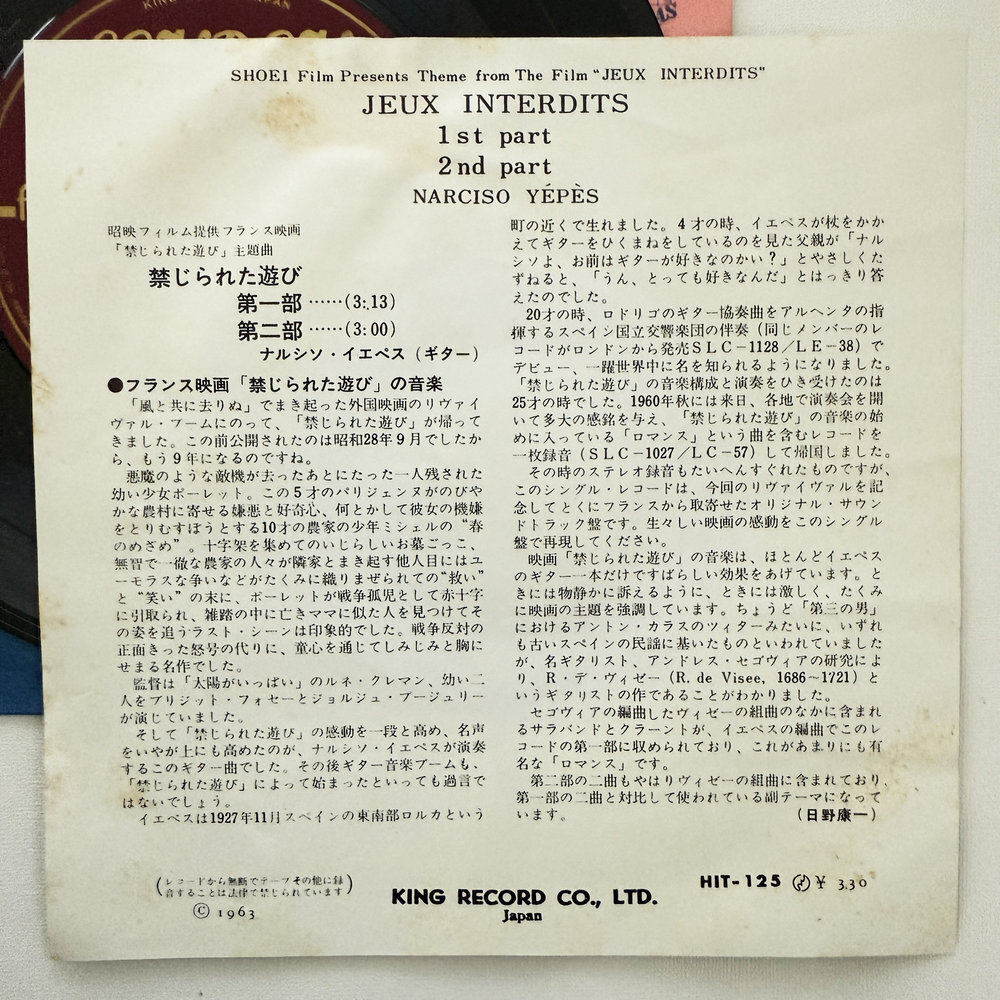 SHOEI Film Presents Theme from The Film "JEUX INTERDITS"
JEUX INTERDITS
1st part
2nd part
NARCISO YÉPÈS
昭映フィルム提供フランス映画
「禁じられた遊び」主題曲
禁じられた遊び
第一部……(3:13)
第二部……(3:00)
ナルシソ・イエペス（ギター）
●フランス映画「禁じられた遊び」の音楽
「風と共に去りぬ」でまき起った外国映画のリヴァイ
ヴァル・ブームにのって、「禁じられた遊び」が帰って
きました。この前公開されたのは昭和28年9月でしたか
ら、もう9年になるのですね。
悪魔のような敵機が去ったあとにたった一人残された
幼い少女ポーレット。この5才のパリジェンヌがのびや
かな農村に寄せる嫌悪と好奇心、何とかして彼女の機嫌
をとりむすぼうとする10才の農家の少年ミシェルの“春
のめざめ”。十字架を集めてのいじらしいお墓ごっこ、
無智で一徹な農家の人々が隣家とまき起す他人目にはユ
ーモラスな争いなどがたくみに織りまぜられての“救い”
と“笑い”の末に、ポーレットが戦争孤児として赤十字
に引取られ、雑踏の中に亡きママに似た人を見つけてそ
の姿を追うラスト・シーンは印象的でした。戦争反対の
正面きった怒号の代りに、童心を通じてしみじみと胸に
せまる名作でした。
監督は「太陽がいっぱい」のルネ・クレマン、幼い二
人をブリジット・フォセーとジョルジュ・プージュリー
が演じていました。
そして「禁じられた遊び」の感動を一段と高め、名声
をいやが上にも高めたのが、ナルシソ・イエペスが演奏
するこのギター曲でした。その後ギター音楽ブームも、
「禁じられた遊び」によって始まったといっても過言で
はないでしょう。
イエペスは1927年11月スペインの東南部ロルカという
町の近くで生れました。4才の時、イエペスが杖をかか
えてギターをひくまねをしているのを見た父親が「ナル
シソよ、お前はギターが好きなのかい？」とやさしくた
ずねると、「うん、とっても好きなんだ」とはっきり答
えたのでした。
20才の時、ロドリゴのギター協奏曲をアルヘンタの指
揮するスペイン国立交響楽団の伴奏（同じメンバーのレ
コードがロンドンから発売SLC－1128／LE－38）で
デビュー、一躍世界中に名を知られるようになりました。
「禁じられた遊び」の音楽構成と演奏をひき受けたのは
25才の時でした。1960年秋には来日、各地で演奏会を開
いて多大の感銘を与え、「禁じられた遊び」の音楽の始
めに入っている「ロマンス」という曲を含むレコードを
一枚録音（SLC－1027／LC－57）して帰国しました。
その時のステレオ録音もたいへんすぐれたものですが、
このシングル・レコードは、今回のリヴァイヴァルを記
念してとくにフランスから取寄せたオリジナル・サウン
ドトラック盤です。生々しい映画の感動をこのシングル
盤で再現してください。
映画「禁じられた遊び」の音楽は、ほとんどイエペス
のギター一本だけですばらしい効果をあげています。と
きには物静かに訴えるように、ときには激しく、たくみ
に映画の主題を強調しています。ちょうど「第三の男」
におけるアントン・カラスのツィターみたいに、いずれ
も古いスペインの民謡に基いたものといわれていました
が、名ギタリスト、アンドレス・セゴヴィアの研究によ
り、R・デ・ヴィゼー（R. de Visee, 1686～1721）と
いうギタリストの作であることがわかりました。
セゴヴィアの編曲したヴィゼーの組曲のなかに含まれ
るサラバンドとクラーントが、イエペスの編曲でこのレ
コードの第一部に収められており、これがあまりにも有
名な「ロマンス」です。
第二部の二曲もやはりヴィゼーの組曲に含まれており、
第一部の二曲と対比して使われている副テーマになって
います。
（日野康一）
（レコードから無断でテープその他に録
音することは法律で禁じられています）
Ⓒ 1963
KING RECORD CO., LTD.
Japan
HIT-125 ¥ 330